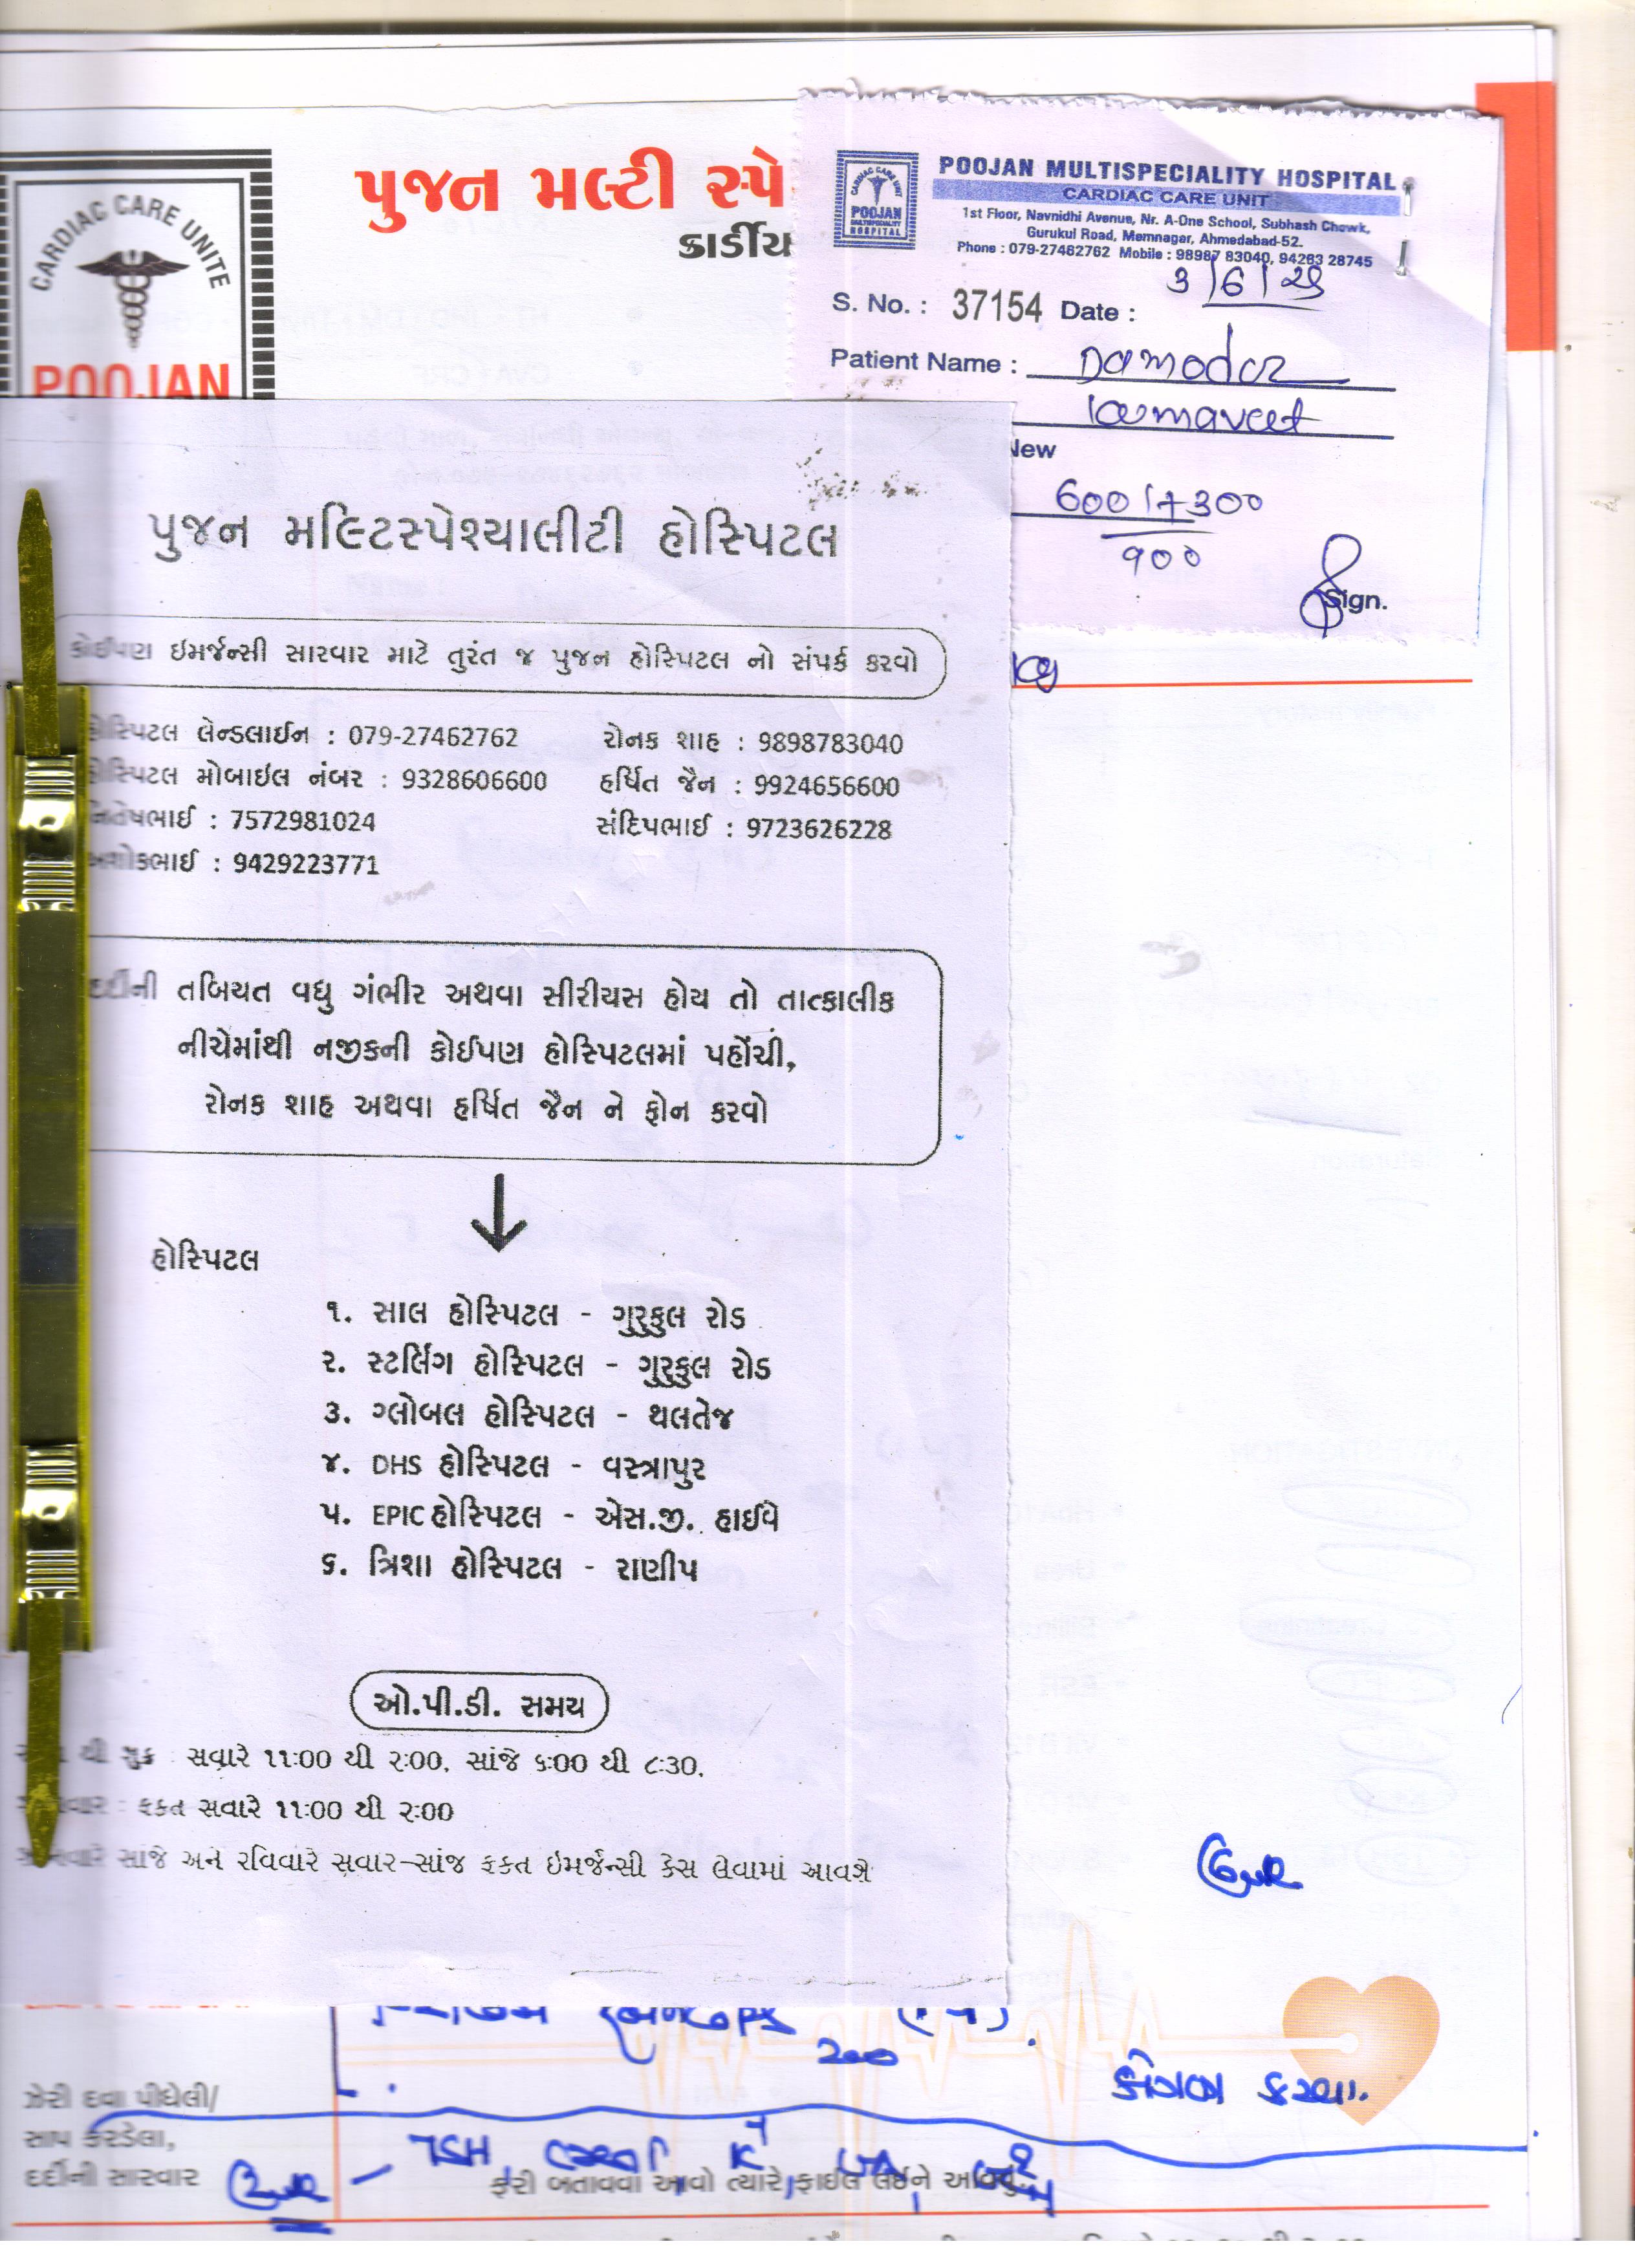 પુજન મલ્ટી સ્પે
કાર્ડીય
CARDIAC CARE UNITE
POOJAN
CARDIAC CARE UNIT
POOJAN
MULTISPECIALITY
HOSPITAL
POOJAN MULTISPECIALITY HOSPITAL
CARDIAC CARE UNIT
1st Floor, Navnidhi Avenue, Nr. A-One School, Subhash Chowk,
Gurukul Road, Memnagar, Ahmedabad-52.
Phone : 079-27462762 Mobile : 98987 83040, 94263 28745
S. No. : 37154 Date : 3/6/25
Patient Name : Damodar
New
600/+300
900
Sign.
પુજન મલ્ટિસ્પેશ્યાલીટી હોસ્પિટલ
કોઈપણ ઇમર્જન્સી સારવાર માટે તુરંત જ પુજન હોસ્પિટલ નો સંપર્ક કરવો
હોસ્પિટલ લેન્ડલાઈન : 079-27462762 રોનક શાહ : 9898783040
હોસ્પિટલ મોબાઇલ નંબર : 9328606600 હર્ષિત જૈન : 9924656600
: 7572981024 સંદિપભાઈ : 9723626228
અશોકભાઈ : 9429223771
દર્દીની તબિયત વધુ ગંભીર અથવા સીરીયસ હોય તો તાત્કાલીક
નીચેમાંથી નજીકની કોઈપણ હોસ્પિટલમાં પહોંચી,
રોનક શાહ અથવા હર્ષિત જૈન ને ફોન કરવો
હોસ્પિટલ
૧. સાલ હોસ્પિટલ - ગુરુકુલ રોડ
૨. સ્ટર્લિંગ હોસ્પિટલ - ગુરુકુલ રોડ
૩. ગ્લોબલ હોસ્પિટલ - થલતેજ
૪. DHS હોસ્પિટલ - વસ્ત્રાપુર
૫. EPIC હોસ્પિટલ - એસ.જી. હાઈવે
૬. ત્રિશા હોસ્પિટલ - રાણીપ
ઓ.પી.ડી. સમય
થી શુક્ર : સવારે ૧૧:00 થી ૨:00, સાંજે ૬:00 થી ૮:૩0,
: ફકત સવારે ૧૧:00 થી ૨:00
સાંજે અને રવિવારે સવાર-સાંજ ફકત ઇમર્જન્સી કેસ લેવામાં આવશે
200
ઝેરી દવા પીધેલી/
સાપ કરડેલા,
દર્દીની સારવાર
TSH, K+
ફરી બતાવવા આવો ત્યારે ફાઈલ લઈને આવવું.